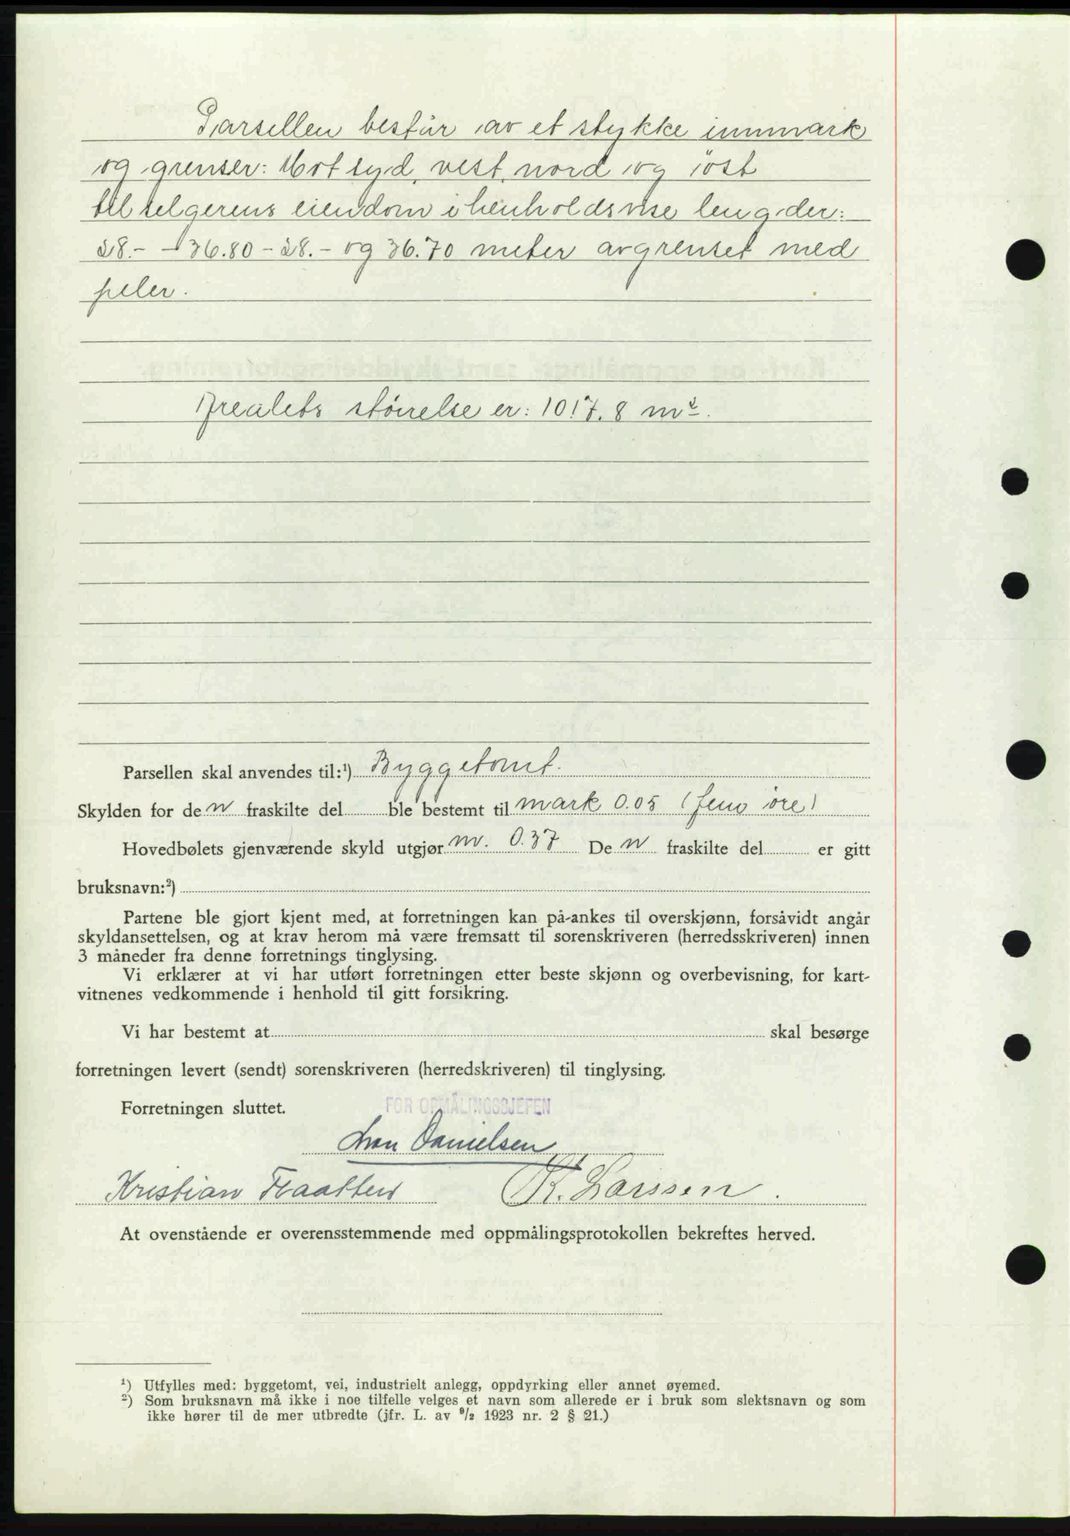 Parsellen består av et stykke innmark
og grenser: Mot syd, vest, nord og øst
til selgerens eiendom i henholdsvise lengder:
28.- - 36.80 - 28.- og 36.70 meter avgrenset med
peler.
Arealets størrelse er: 1017.8 m².
Parsellen skal anvendes til:¹) Byggetomt.
Skylden for de n fraskilte del ble bestemt til mark 0.05 (fem øre)
Hovedbølets gjenværende skyld utgjør m. 0.37 De n fraskilte del er gitt
bruksnavn:²)
Partene ble gjort kjent med, at forretningen kan på-ankes til overskjønn, forsåvidt angår
skyldansettelsen, og at krav herom må være fremsatt til sorenskriveren (herredsskriveren) innen
3 måneder fra denne forretnings tinglysing.
Vi erklærer at vi har utført forretningen etter beste skjønn og overbevisning, for kart-
vitnenes vedkommende i henhold til gitt forsikring.
Vi har bestemt at skal besørge
forretningen levert (sendt) sorenskriveren (herredskriveren) til tinglysing.
Forretningen sluttet.
FOR OPMÅLINGSSJEFEN
Danielsen
Kristian Fraatten K. Larssen.
At ovenstående er overensstemmende med oppmålingsprotokollen bekreftes herved.
¹) Utfylles med: byggetomt, vei, industrielt anlegg, oppdyrking eller annet øyemed.
²) Som bruksnavn må ikke i noe tilfelle velges et navn som allerede er i bruk som slektsnavn og som
ikke hører til de mer utbredte (jfr. L. av ⁹/₂ 1923 nr. 2 § 21.)